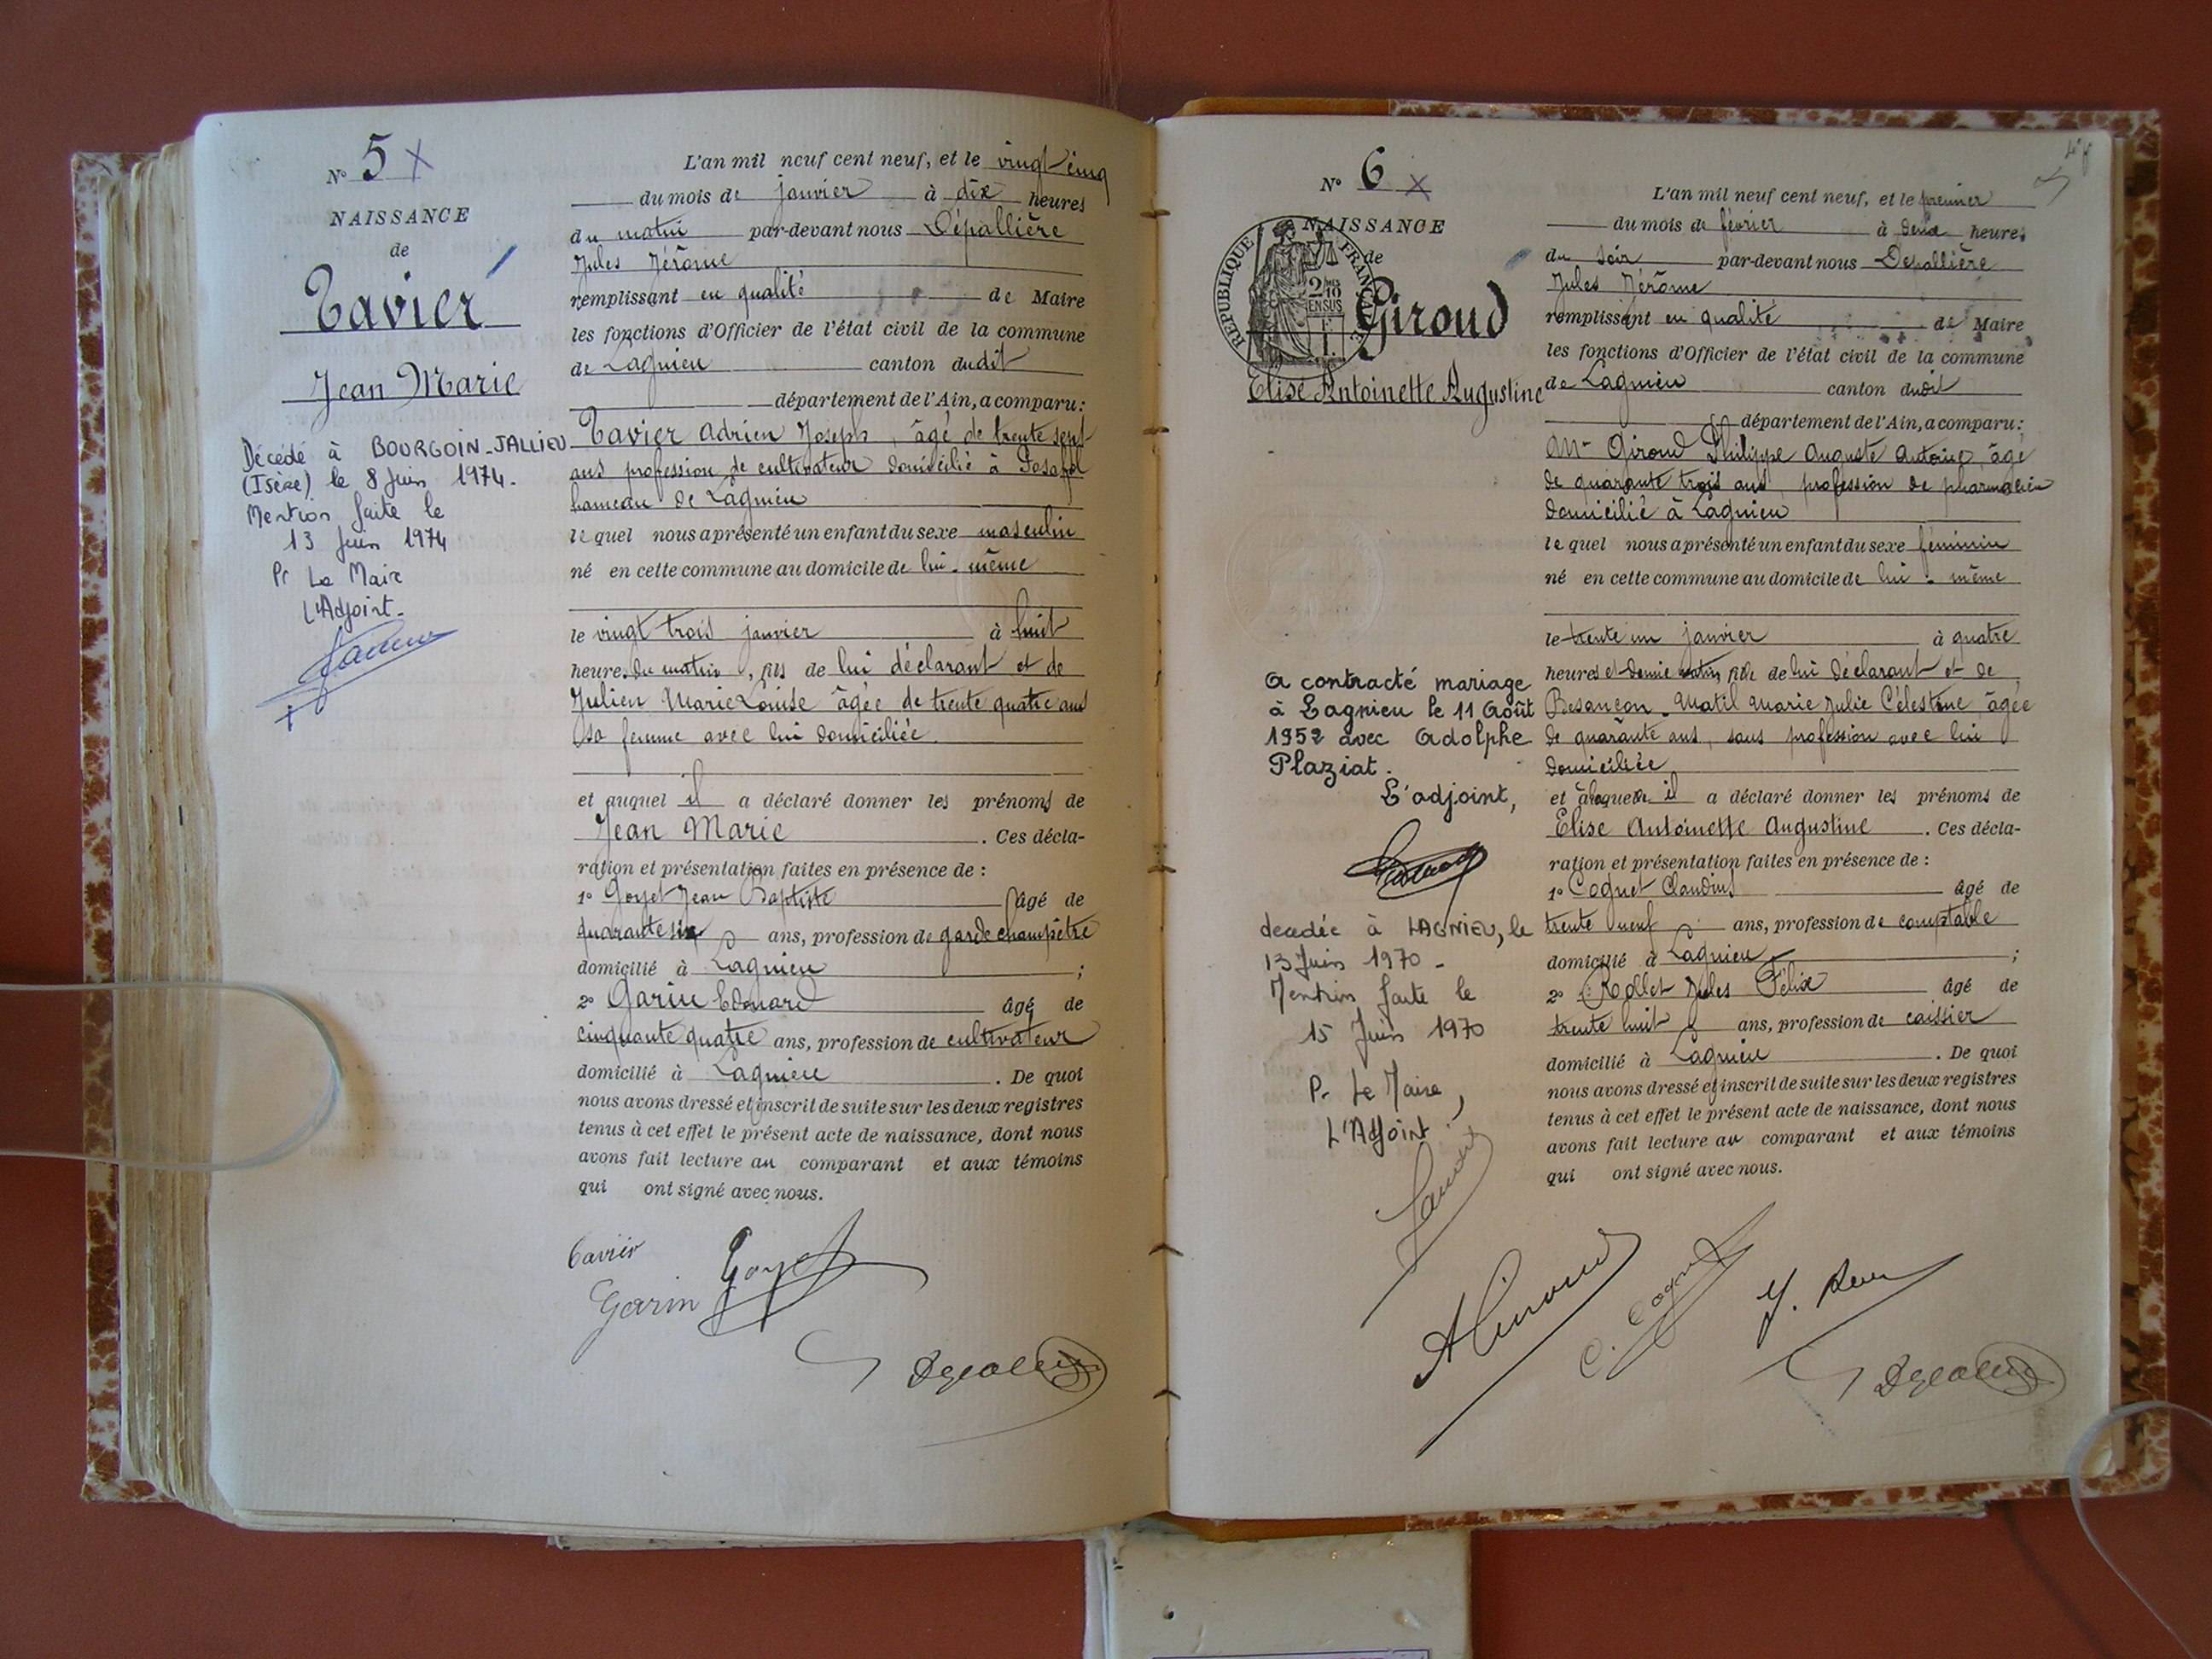 N° 5 X
NAISSANCE
de
Tavier
Jean Marie
Décédé à BOURGOIN-JALLIEU
(Isère) le 8 Juin 1974.
Mention faite le
13 Juin 1974
Pr Le Maire
L'Adjoint.
L'an mil neuf cent neuf, et le vingt cinq
du mois de janvier à dix heures
du matin par-devant nous Dépallière
Jules Jérôme
remplissant en qualité de Maire
les fonctions d'Officier de l'état civil de la commune
de Lagnieu canton dudit
département de l'Ain, a comparu:
Tavier Adrien Joseph, âgé de trente sept
ans profession de cultivateur domicilié à Posafol
hameau de Lagnieu
lequel nous a présenté un enfant du sexe masculin
né en cette commune au domicile de lui-même
le vingt trois janvier à huit
heures du matin, fils de lui déclarant et de
Julien Marie Louise âgée de trente quatre ans
sa femme avec lui domiciliée.
et auquel il a déclaré donner les prénoms de
Jean Marie. Ces décla-
ration et présentation faites en présence de :
1° Goyet Jean Baptiste âgé de
quarante six ans, profession de garde champêtre
domicilié à Lagnieu ;
2° Garin Edouard âgé de
cinquante quatre ans, profession de cultivateur
domicilié à Lagnieu. De quoi
nous avons dressé et inscrit de suite sur les deux registres
tenus à cet effet le présent acte de naissance, dont nous
avons fait lecture au comparant et aux témoins
qui ont signé avec nous.
Tavier
Garin Goyet
N° 6 X
NAISSANCE
de
REPUBLIQUE FRANÇAISE
Giroud
Elise Antoinette Augustine
a contracté mariage
à Lagnieu le 11 Août
1952 avec Adolphe
Plaziat.
L'adjoint,
decedée à LAGNIEU, le
13 Juin 1970 -
Mention faite le
15 Juin 1970
P. Le Maire,
L'Adjoint
L'an mil neuf cent neuf, et le premier
du mois de février à deux heures
du soir par-devant nous Depallière
Jules Jérôme
remplissant en qualité de Maire
les fonctions d'Officier de l'état civil de la commune
de Lagnieu canton dudit
département de l'Ain, a comparu:
Mr Giroud Philippe Auguste Antoine, âgé
de quarante trois ans, profession de pharmacien
domicilié à Lagnieu
lequel nous a présenté un enfant du sexe féminin
né en cette commune au domicile de lui-même
le trente un janvier à quatre
heures et demie matin, fille de lui déclarant et de
Besançon-Matil Marie Julie Célestine âgée
de quarante ans, sans profession avec lui
domiciliée
et à laquelle il a déclaré donner les prénoms de
Elise Antoinette Augustine. Ces décla-
ration et présentation faites en présence de :
1° Cognet Claudius âgé de
trente neuf ans, profession de comptable
domicilié à Lagnieu ;
2° Rollet Jules Félix âgé de
trente huit ans, profession de caissier
domicilié à Lagnieu. De quoi
nous avons dressé et inscrit de suite sur les deux registres
tenus à cet effet le présent acte de naissance, dont nous
avons fait lecture au comparant et aux témoins
qui ont signé avec nous.
A Giroud
C. Cognet